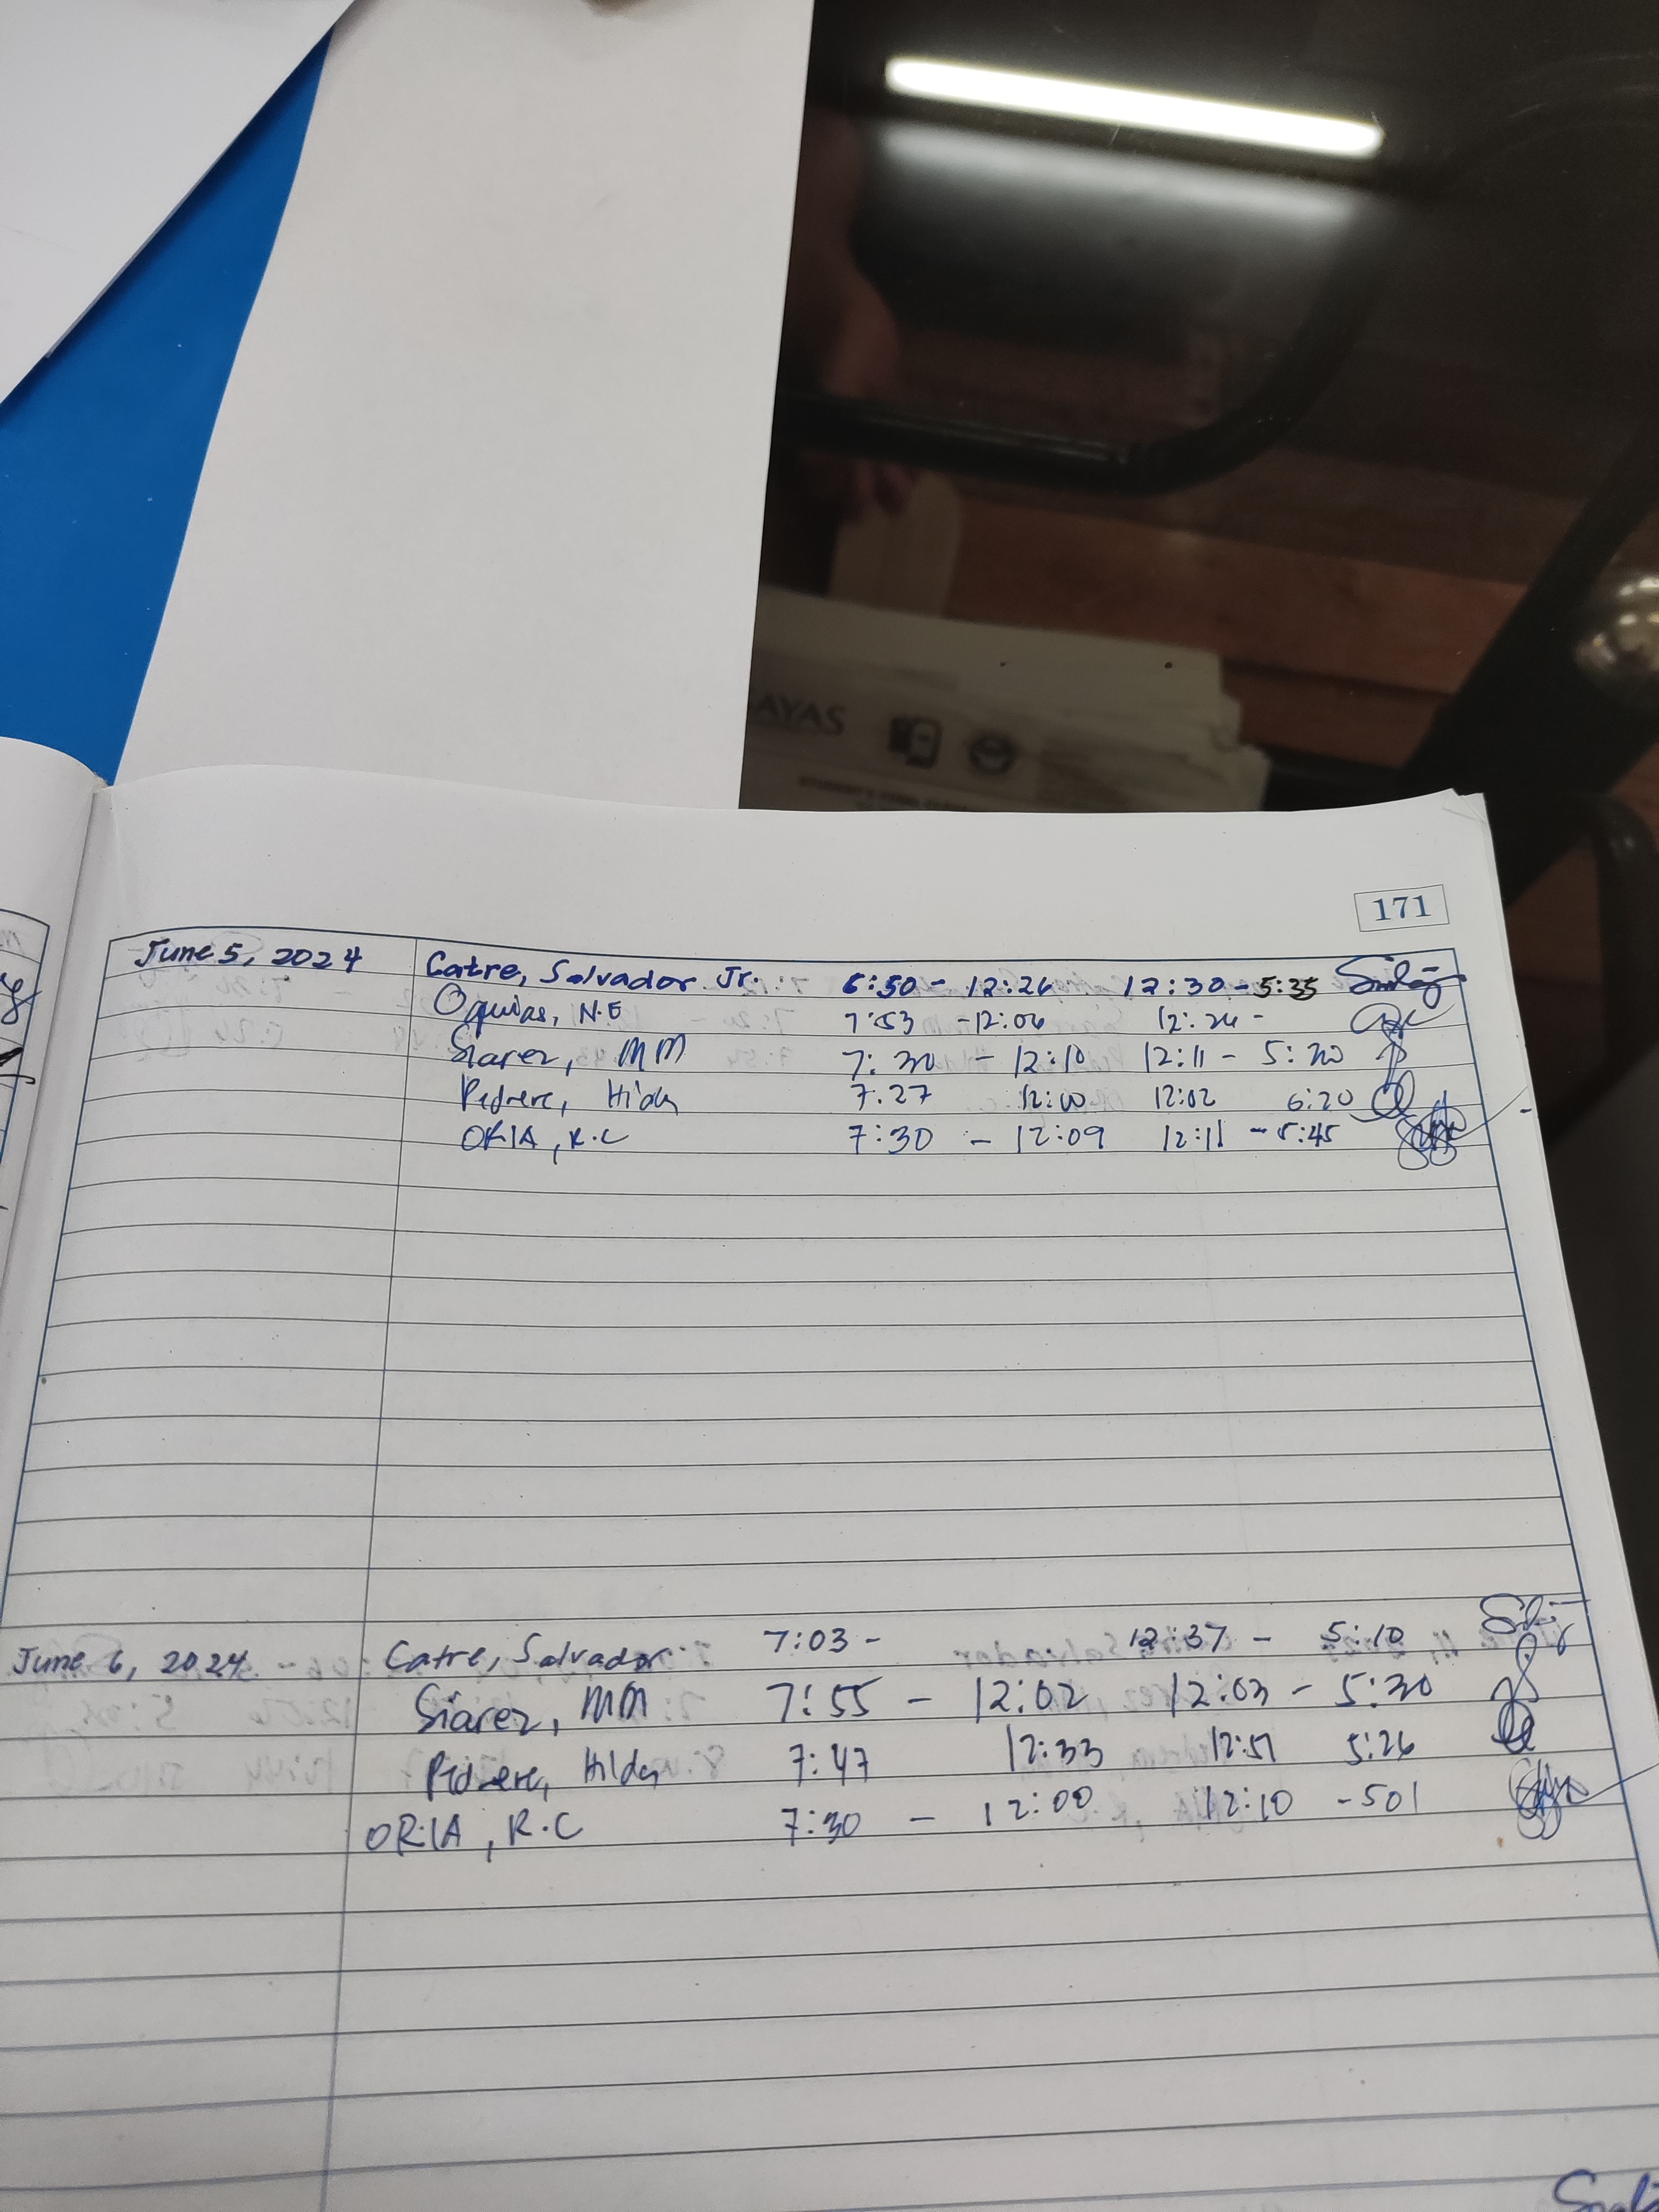 AYAS
171
June 5, 2024 Catre, Salvador Jr. 6:50 - 12:26 12:30 - 5:35
Oquias, N.E 7:53 - 12:06 12:26 -
Siarez, MM 7:30 - 12:10 12:11 - 5:30
Pedrera, Hilda 7:27 12:00 12:02 6:20
ORIA, R.C 7:30 - 12:09 12:11 - 5:45
June 6, 2024 Catre, Salvador 7:03 - 12:37 - 5:10
Siarez, MM 7:55 - 12:02 12:03 - 5:30
Pedrera, Hilda 7:47 12:33 12:51 5:26
ORIA, R.C 7:30 - 12:00 12:10 - 501